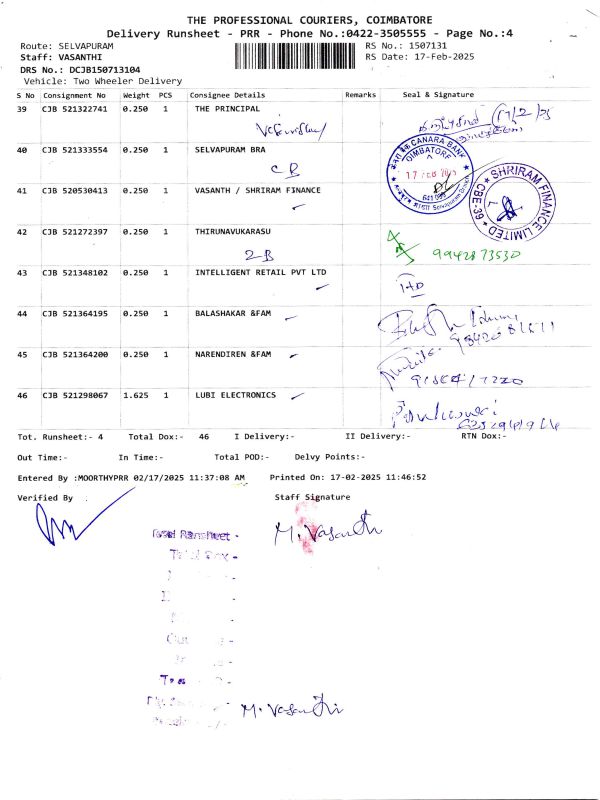 THE PROFESSIONAL COURIERS, COIMBATORE
Delivery Runsheet - PRR - Phone No.:0422-3505555 - Page No.:4
Route: SELVAPURAM RS No.: 1507131
Staff: VASANTHI RS Date: 17-Feb-2025
DRS No.: DCJB150713104
Vehicle: Two Wheeler Delivery
S No Consignment No Weight PCS Consignee Details Remarks Seal & Signature
39 CJB 521322741 0.250 1 THE PRINCIPAL 17/2/25
40 CJB 521333554 0.250 1 SELVAPURAM BRA
CB
CANARA BANK
COIMBATORE
17 FEB 2025
41 CJB 520530413 0.250 1 VASANTH / SHRIRAM FINANCE
SHRIRAM FINANCE LIMITED
CBE-39
42 CJB 521272397 0.250 1 THIRUNAVUKARASU
2-B 9942873530
43 CJB 521348102 0.250 1 INTELLIGENT RETAIL PVT LTD
44 CJB 521364195 0.250 1 BALASHAKAR &FAM
45 CJB 521364200 0.250 1 NARENDIREN &FAM
46 CJB 521298067 1.625 1 LUBI ELECTRONICS
Tot. Runsheet:- 4 Total Dox:- 46 I Delivery:- II Delivery:- RTN Dox:-
Out Time:- In Time:- Total POD:- Delvy Points:-
Entered By :MOORTHYPRR 02/17/2025 11:37:08 AM Printed On: 17-02-2025 11:46:52
Verified By : Staff Signature
M. Vasanthi
Total Runsheet -
Total Dox -
M. Vasanthi